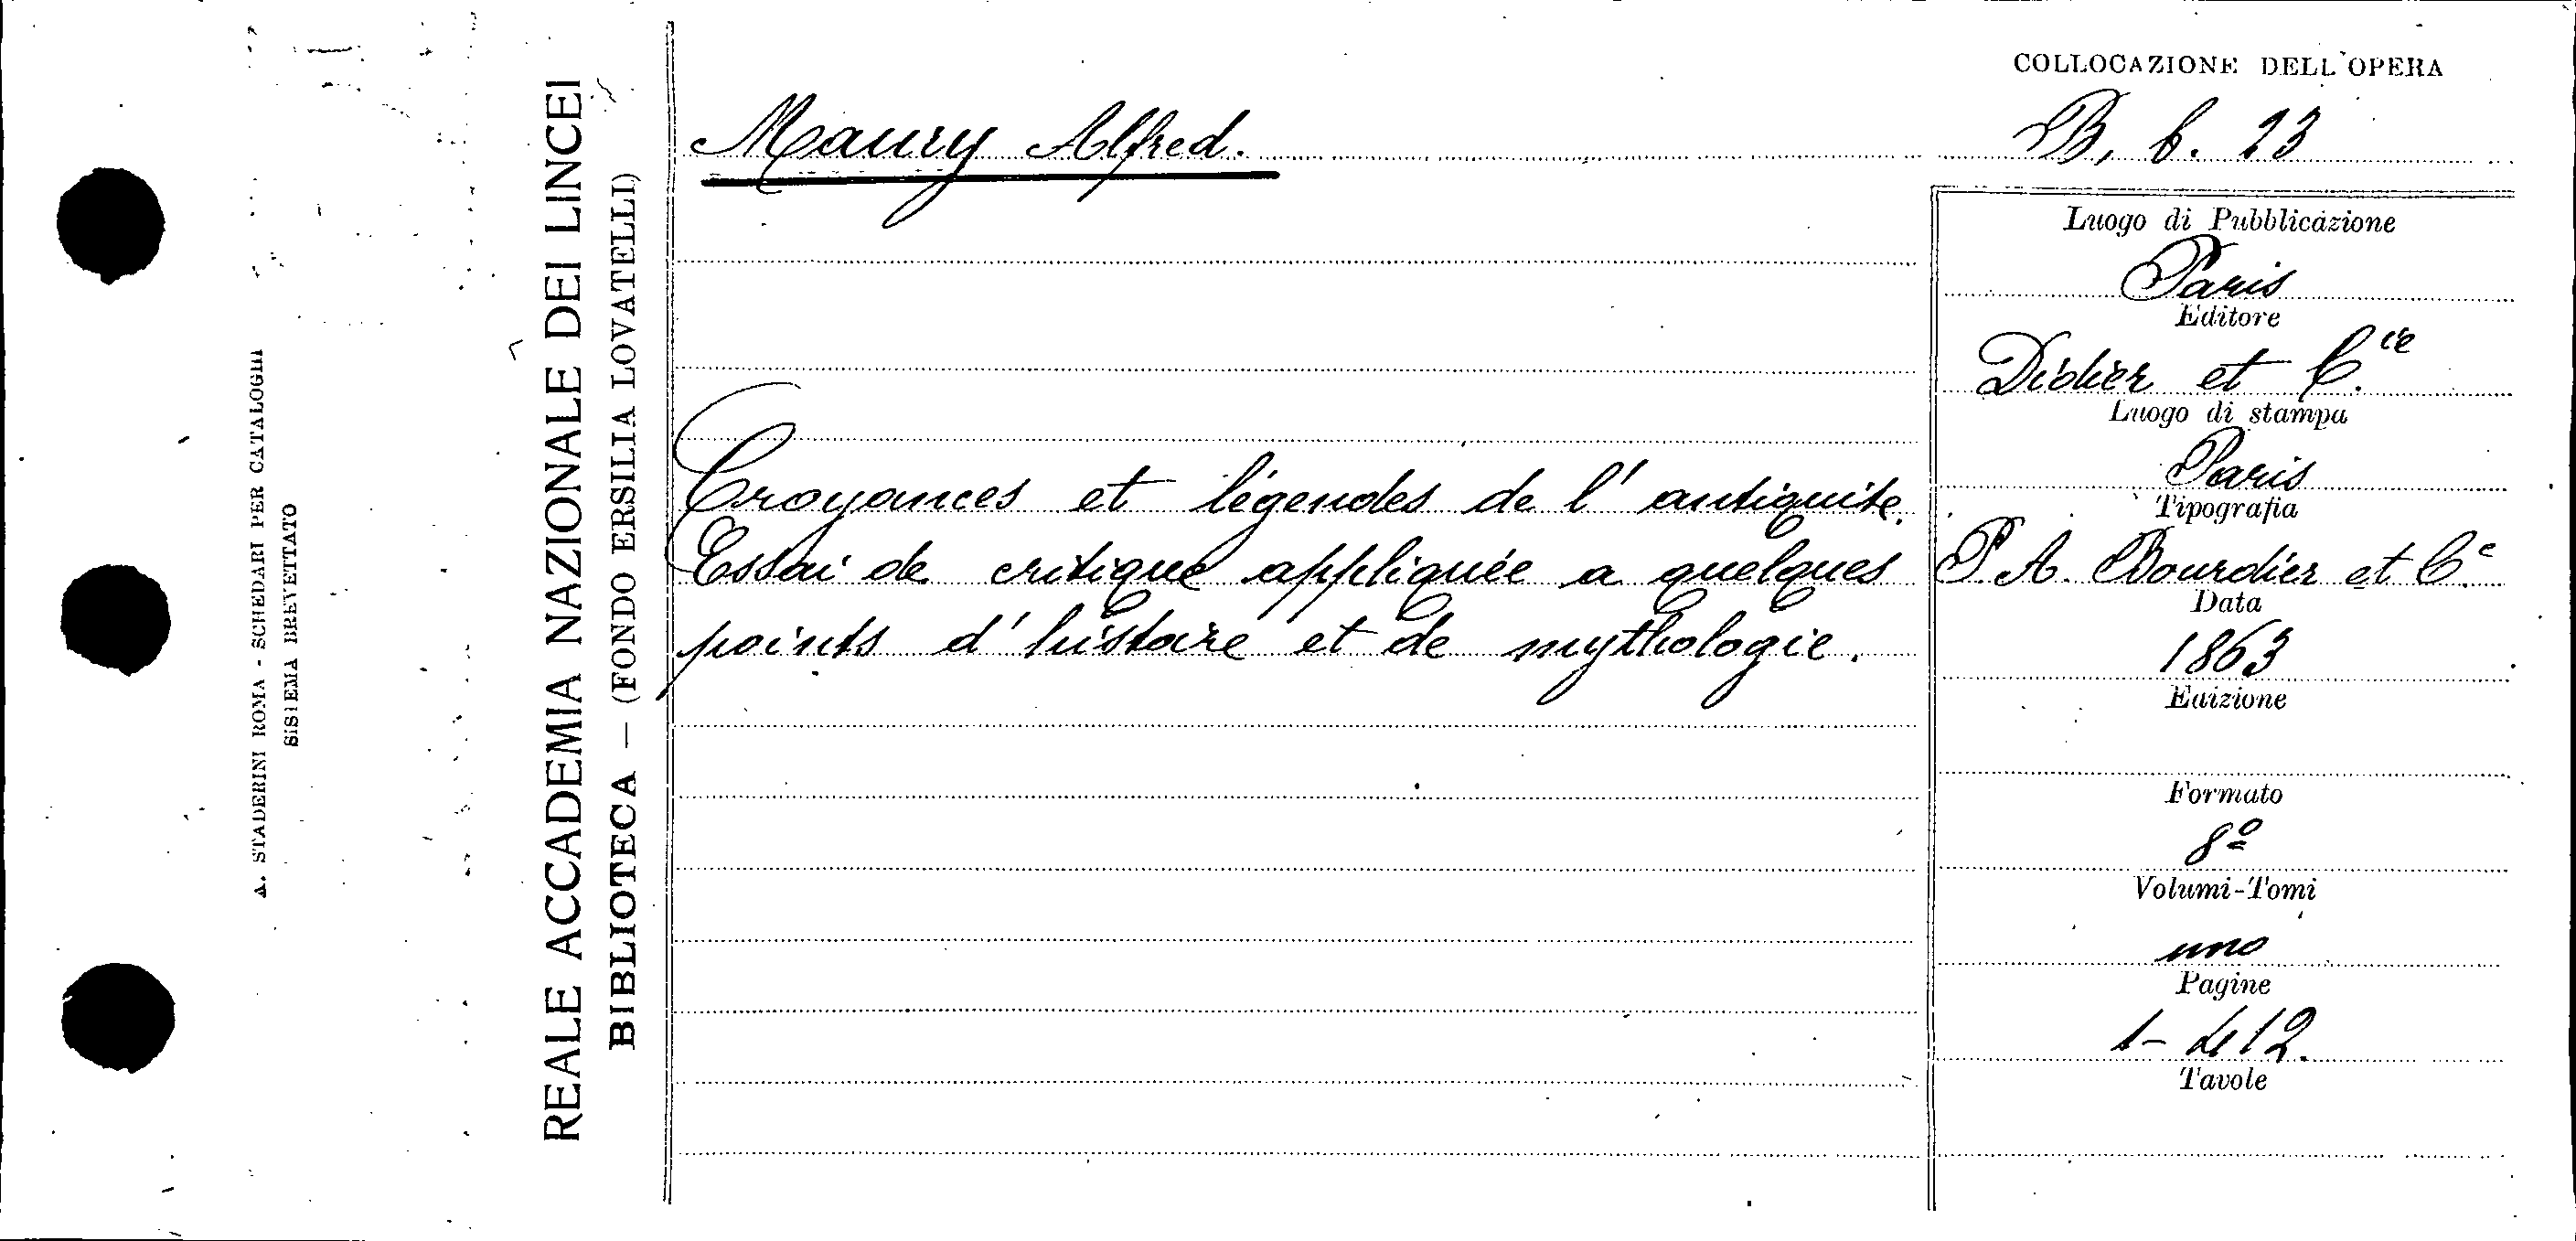 A. STADERINI ROMA - SCHEDARI PER CATALOGHI
SISTEMA BREVETTATO
REALE ACCADEMIA NAZIONALE DEI LINCEI
BIBLIOTECA — (FONDO ERSILIA LOVATELLI)
Maury Alfred.
Croyances et légendes de l'antiquité.
Essai de critique appliquée a quelques
points d'histoire et de mythologie.
COLLOCAZIONE DELL'OPERA
B, b. 23
Luogo di Pubblicazione
Paris
Editore
Didier et C.ie
Luogo di stampa
Paris
Tipografia
P. A. Bourdier et C.e
Data
1863
Edizione
Formato
8º
Volumi-Tomi
uno
Pagine
1-412.
Tavole